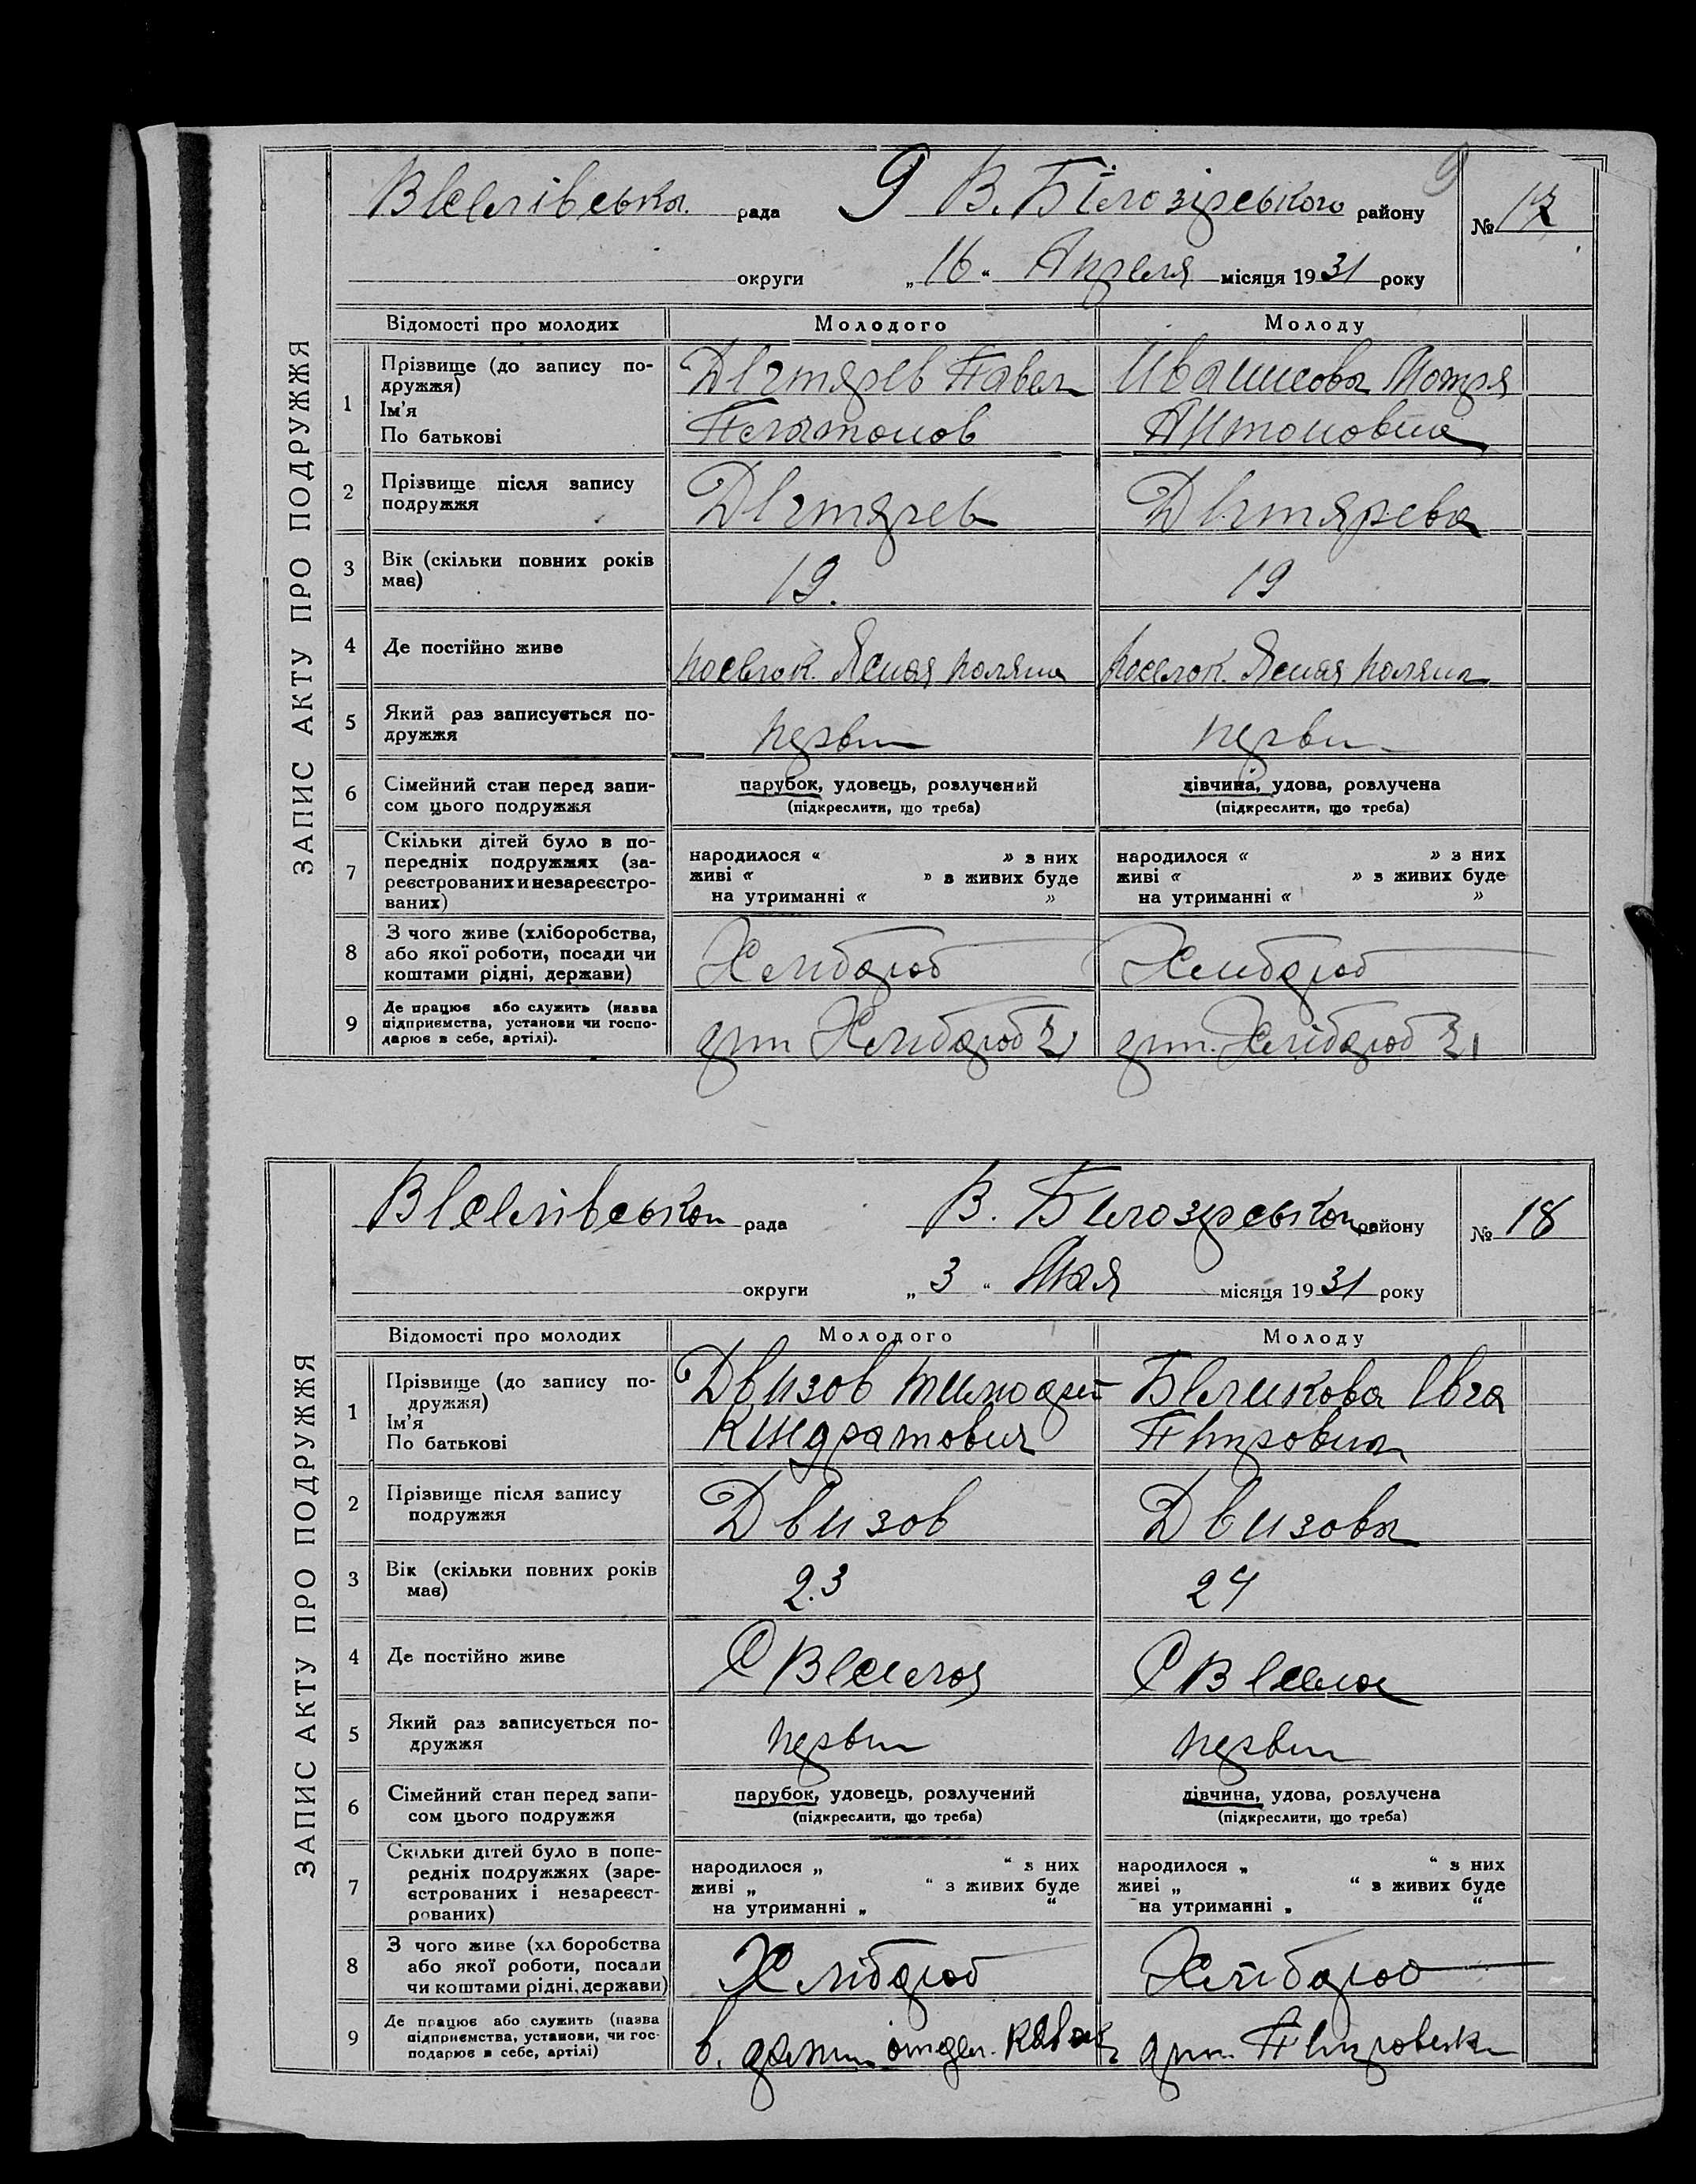 ЗАПИС АКТУ ПРО ПОДРУЖЖЯ
Веселівська рада 9 В. Білозірського району 9 № 17
округи „16“ Апреля місяця 1931 року
Відомості про молодих Молодого Молоду
1 Прізвище (до запису по-
дружжя)
Ім'я
По батькові
Дегтярев Павел
Платонов
Ивашкова Мотря
Антоновна
2 Прізвище після запису
подружжя
Дегтярев Дегтярева
3 Вік (скільки повних років
має)
19. 19
4 Де постійно живе поселок. Ясная поляна поселок. Ясная поляна
5 Який раз записується по-
дружжя
перви перви
6 Сімейний стан перед запи-
сом цього подружжя
парубок, удовець, розлучений
(підкреслити, що треба)
дівчина, удова, розлучена
(підкреслити, що треба)
7 Скільки дітей було в по-
передніх подружжях (за-
реєстрованих и незареєстро-
ваних)
народилося “ » з них
живі “ » з живих буде
на утриманні “ »
народилося “ » з них
живі “ » з живих буде
на утриманні “ »
8 З чого живе (хліборобства,
або якої роботи, посади чи
коштами рідні, держави)
Хлибороб Хлибороб
9 Де працює або служить (назва
підприємства, установи чи госпо-
дарює в себе, артілі).
арт Хлибороб арт. Хлібороб
ЗАПИС АКТУ ПРО ПОДРУЖЖЯ
Веселівської рада В. Білозірської району № 18
округи „3“ Мая місяця 1931 року
Відомості про молодих Молодого Молоду
1 Прізвище (до запису по-
дружжя)
Ім'я
По батькові
Двизов Тимофей
Киндратович
Беликова Евга
Петровна
2 Прізвище після запису
подружжя
Двизов Двизова
3 Вік (скільки повних років
має)
23 24
4 Де постійно живе С Веселоя С Веселое
5 Який раз записується по-
дружжя
перви перви
6 Сімейний стан перед запи-
сом цього подружжя
парубок, удовець, розлучений
(підкреслити, що треба)
дівчина, удова, розлучена
(підкреслити, що треба)
7 Скільки дітей було в попе-
редніх подружжях (заре-
єстрованих і незареєст-
рованих)
народилося „ “ з них
живі „ “ з живих буде
на утриманні „ “
народилося „ “ з них
живі „ “ з живих буде
на утриманні „ “
8 З чого живе (хл боробства
або якої роботи, посади
чи коштами рідні, держави)
Хлібороб Хлібороб
9 Де працює або служить (назва
підприємства, установи, чи гос-
подарює в себе, артілі)
в. отдел. арт.